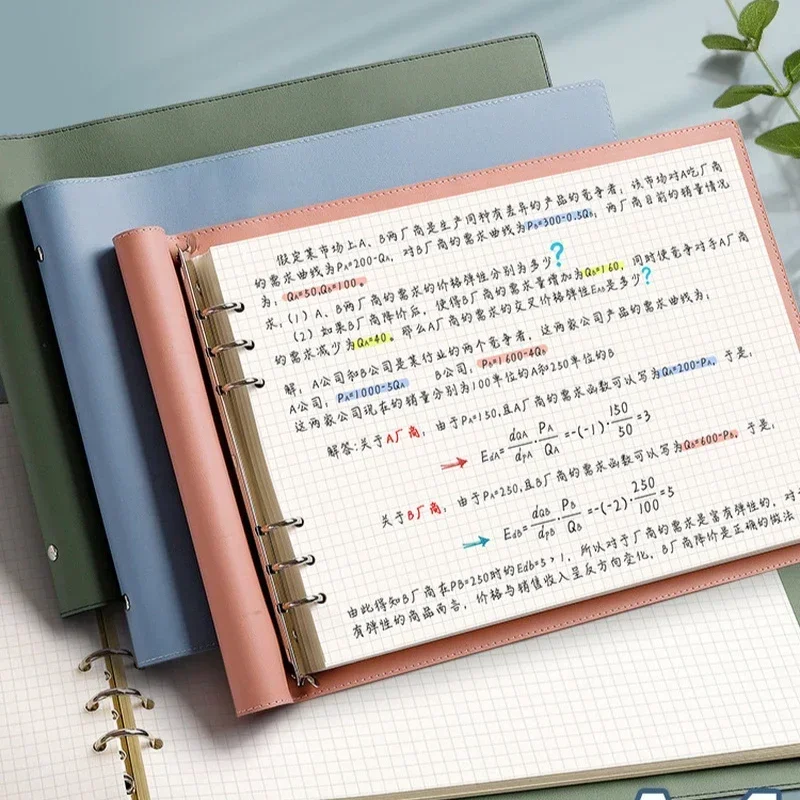 假定某市场上A、B两厂商是生产同种有差异的产品的竞争者；该市场对A吃厂商
的需求曲线为PA=200-QA，对B厂商的需求曲线为PB=300-0.5QB；两厂商目前的销量情况
为：QA=50,QB=100。
求：（1）A、B两厂商的需求的价格弹性分别为多少？
（2）如果B厂商降价后，使得B厂商的需求量增加为QB=160，同时使竞争对手A厂商
的需求减少为QA=40。那么A厂商的需求的交叉价格弹性EAB是多少？
解：A公司和B公司是某行业的两个竞争者，这两家公司产品的需求曲线为：
A公司：PA=1000-5QA B公司：PB=1600-4QB
这两家公司现在的销量分别为100单位的A和250单位的B
解答:关于A厂商：由于PA=150,且A厂商的需求函数可以写为QA=200-PA，于是，
EdA=dQA/dPA·PA/QA=-(-1)·150/50=3
关于B厂商：由于PA=250,且B厂商的需求函数可以写为QB=600-PB。于是：
EdB=dQB/dPB·PB/QB=-(-2)·250/100=5
由此得知B厂商在PB=250时的EdB=5>1，所以对于厂商的需求是富有弹性的，对
有弹性的商品而言，价格与销售收入呈反方向变化，B厂商降价是正确的做法